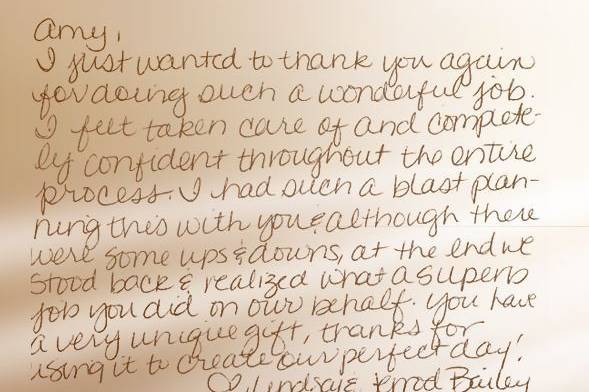 Amy,
I just wanted to thank you again
for doing such a wonderful job.
I felt taken care of and complete-
ly confident throughout the entire
process. I had such a blast plan-
ning this with you & although there
were some ups & downs, at the end we
stood back & realized what a superb
job you did on our behalf. You have
a very unique gift, thanks for
using it to create our perfect day!
♡ Lindsay & Jerrod Bailey